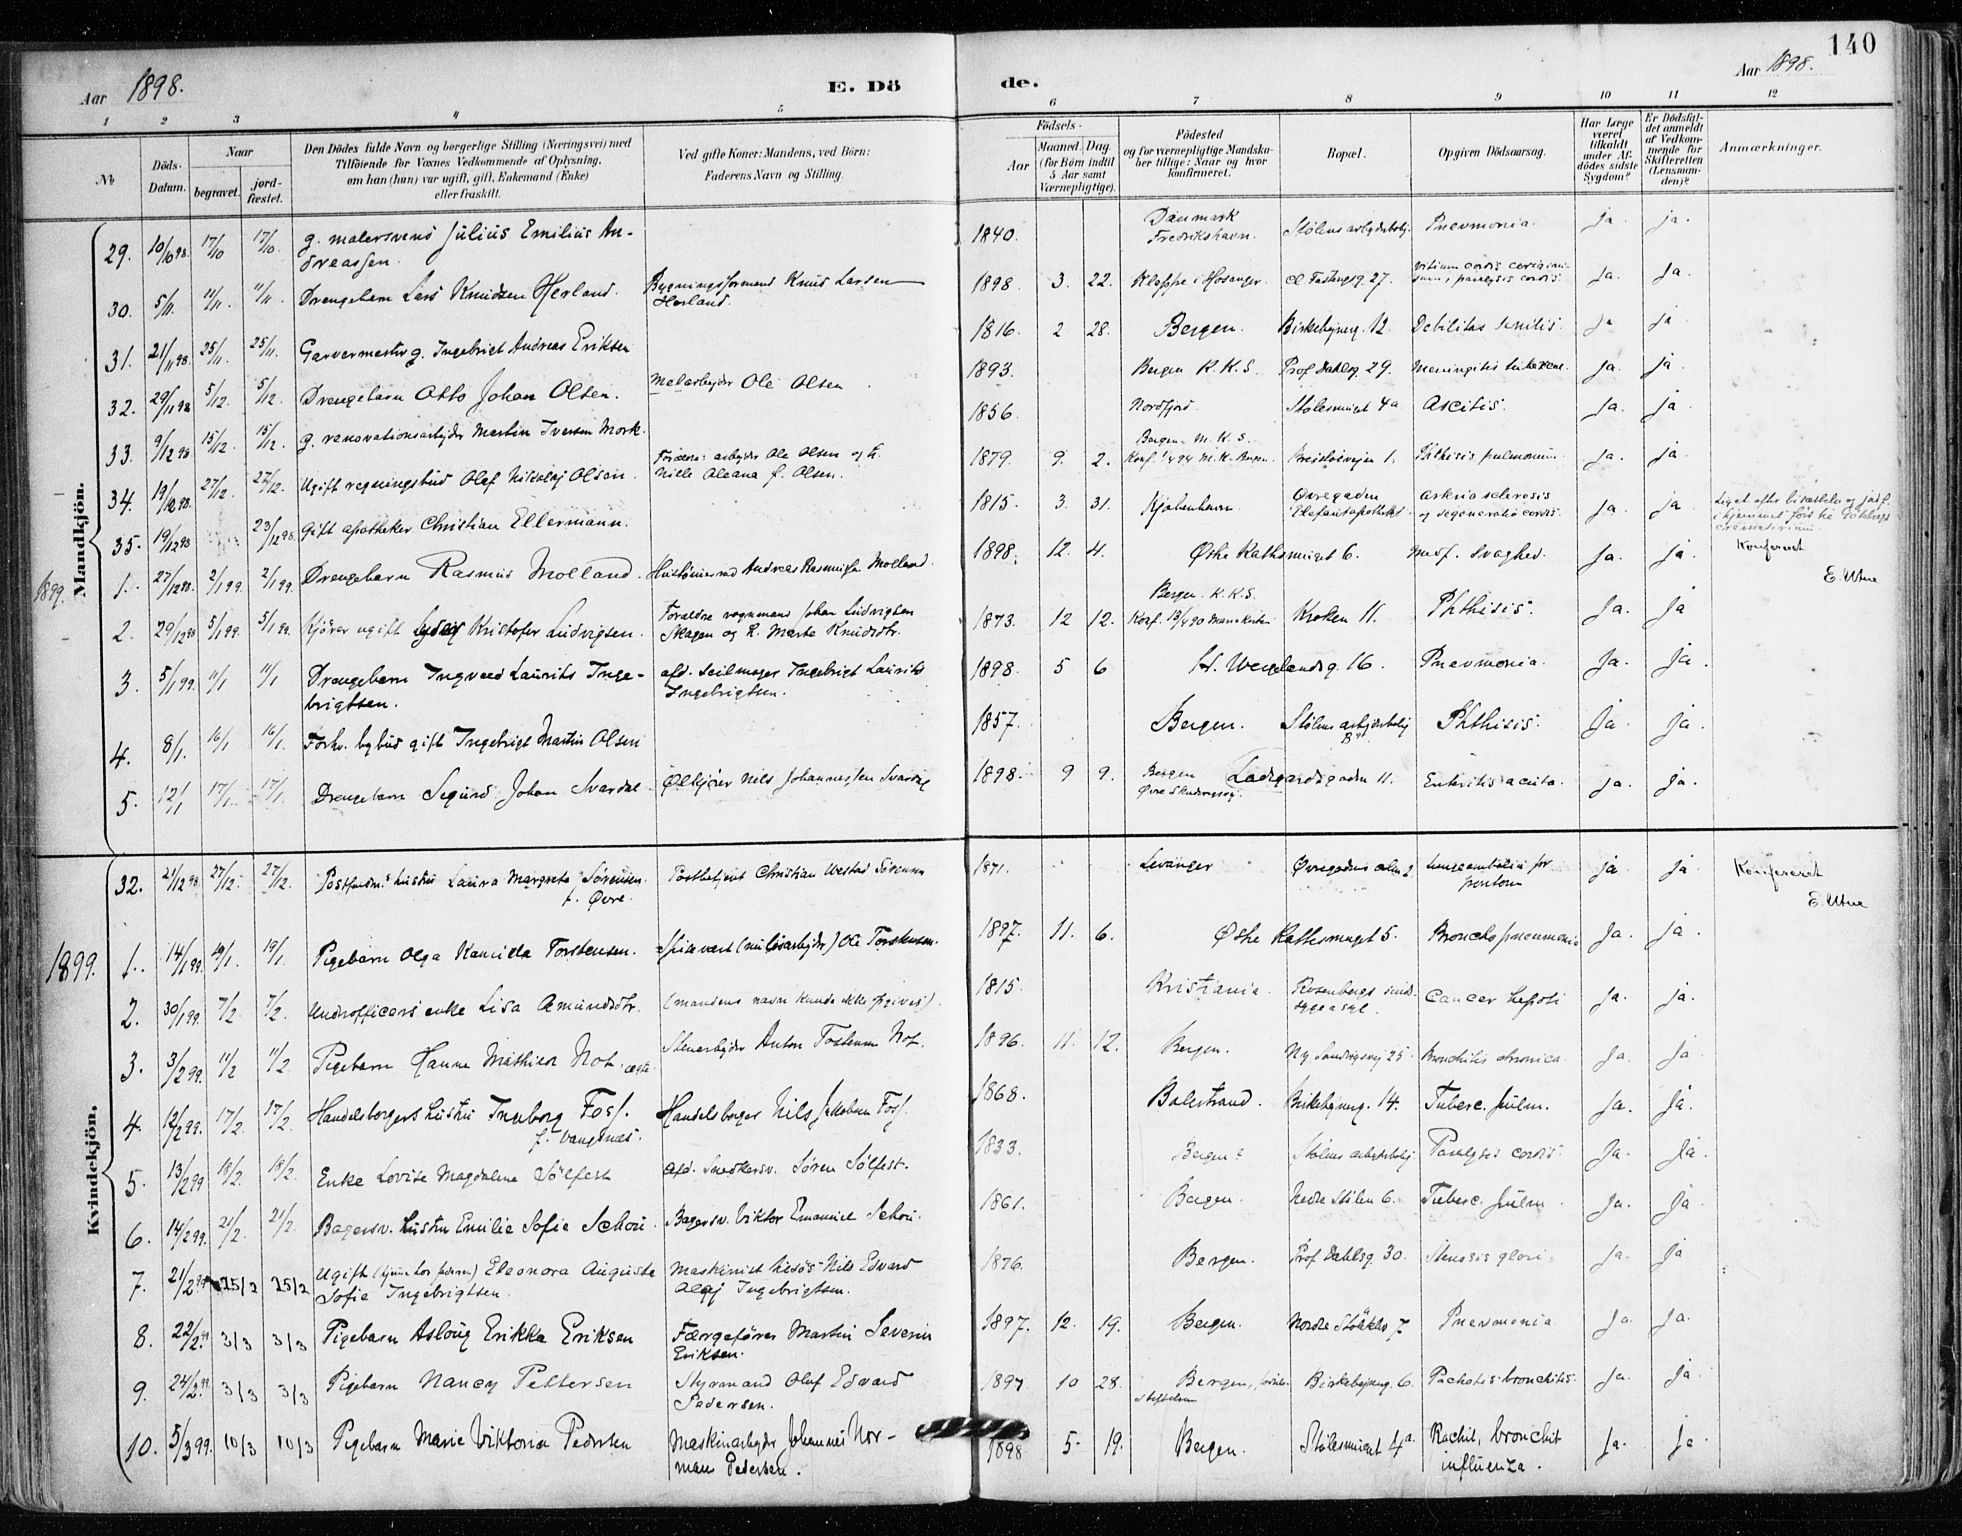 140
Aar 1898.
E. Dö
de.
Aar 1898.
1 2 3 4 5 6 7 8 9 10 11 12
№
Döds-Datum.
Naar
begravet.
jord-fæstet.
Den Dödes fulde Navn og borgerlige Stilling (Næringsvei) med
Tilföiende for Voxnes Vedkommende af Oplysning,
om han (hun) var ugift, gift, Enkemand (Enke)
eller fraskilt.
Ved gifte Koner: Mandens, ved Börn:
Faderens Navn og Stilling.
Födsels-
Aar
Maaned. Dag.
(for Børn indtil
5 Aar samt
Værnepligtige).
Födested
og for værnepligtige Mandska-
ber tillige: Naar og hvor
konfirmeret.
Bopæl.
Opgiven Dödsaarsag.
Har Læge
været
tilkaldt
under Af-
dödes sidste
Sygdom?
Er Dödsfal-
det anmeldt
af Vedkom-
mende for
Skifteretten
(Lensman-
den)?
Anmærkninger.
Mandkjön.
29. 10/10 98. 17/10 17/10. g. malersvend Julius Emilius An-
dreassen. 1840. Danmark
Fredrikshavn. Stølens arbejderbolig. Pnevmonia. ja. ja.
30. 5/11. 11/11. 11/11. Drengebarn Lars Knudsen Herland. Bygningsformand Knud Larsen
Herland. 1898. 3. 22. Kleppe i Hosanger. 27. vitium cordis
paralysis cordis. Ja. Ja.
31. 21/11 98. 25/11. 25/11. Garvermester g. Ingebrigt Andreas Eriksen 1816. 2 28. Bergen. Birkebejnerg. 12. Debilitas senilis. Ja ja
32. 29/11 98 5/12. 5/12. Drengebarn Otto Johan Olsen. Ole Olsen. 1893. Bergen K.K.S. Prof Dahlsg 29. Meningitis tubercul. Ja. ja
33. 9/12 98. 15/12. 15/12. g. renovationsarbejder Martin Iversen Mork. 1856. Nordfjord. Stølesmuget 4a Ascitis. Ja. ja
34. 19/12 98. 27/12. 27/12. Ugift regningsbud Olaf Nikolaj Olsen. Forældre: arbejder Ole Olsen og h.
Oleana f. Olsen. 1879. 9. 2. Bergen. M.K.S.
Konf. M.K. Bergen. 1. Phthisis pulmonum. Ja. ja
35. 19/12 98 23/12 98. Gift apotheker Christian Ellermann. 1815. 3. 31. Kjøbenhavn Øvregaden
Elefantapotheket. Arteriosclerosis
og degeneratio cordis. Ja. ja
Liget efter og jordf.
i hjemmet ført til Göteborgs
crematorium
1899.
1. 27/12 98. 2/1 99. 2/1 99. Drengebarn Rasmus Molland. Andreas Molland. 1898. 12. 4. Østre Kalhsmuget 6. Medf. svaghed. Ja. ja. Konfereret
E. Utne
2. 29/12 98 5/1 99. 5/1 99. Kjører ugift Kristofer Ludvigsen. Forældre vognmand Johan Ludvigsen
Skagen og h. Marte Knudsdtr. 1873. 12 12. Bergen. K.K.S.
Konf. Kroken 11. Phthisis. Ja. Ja
3. 5/1 99. 11/1 11/1 Drengebarn Ingvald Laurits Inge-
brigtsen. afd. seilmager Ingebrigt Laurits
Ingebrigtsen. 1898. 5 6 H. Wergelandsg. 16. Pnevmonia. Ja. Ja.
4. 8/1. 16/1 16/1. Forhv. bybud gift Ingebrigt Martin Olsen 1857. Bergen. Stølens arbejderbolig
Phthisis. Ja. ja.
5. 12/1 17/1. 17/1. Drengebarn Sigurd Johan Svardal Ølkjører Nils Johannessen Svardal 1898. 9 9. Bergen
Øvre Ladegaardsgaden 11. Enteritis acuta. Ja. ja.
Kvindekjön.
32. 21/12 98 27/12. 27/12. hustru Laura Margrete Sørensen
f. Øvre. Postbetjent Christian Westad Sörensen 1871. Levanger Øvregaden
ja ja. Konfereret
E. Utne
1899.
1. 14/1 99. 19/1. 19/1. Pigebarn Olga Kamilla Torstensen. Ole Torstensen. 1897. 11. 6. Østre Kalhsmuget 5. Bronchopneumonia Ja. ja.
2. 30/1 99. 7/2. 7/2. Underofficers enke Lisa Amundsdtr. (mandens navn kunde ikke opgives). 1815. Kristiania. Rosenbergs sinds-
sygeasyl. Cancer hepati Ja. ja.
3. 3/2 99. 11/2 11/2. Pigebarn Hanna Mathilde Not, ægte. Stenarbejder Anton Not. 1896. 11. 12. Bergen. Ny Sandvigsvej 25. Bronchitis chronica. Ja. ja.
4. 12/2 99. 17/2. 17/2. Handelsborgers hustru Ingeborg Foss.
f. Vangsnes. Handelsborger Nils Jakobsen Foss. 1868. Balestrand. Birkebejnerg. 14. Tuberc. pulm. Ja. ja.
5. 13/2 99 18/2. 18/2. Enke Lovise Magdalene Sölfest afd. Snedkersv. Søren Sölfest. 1833. Bergen? Stølens arbejderbolig. Paralysis cordis. Ja. Ja.
6. 14/2 99. 21/2. 21/2. Bagersv. hustru Emilie Sofie Schou. Bagersv. Viktor Emanuel Schou. 1861. Bergen. Nedre Stölen 6. Tuberc. pulm. Ja. Ja
7. 21/2 99 25/2 25/2 Ugift (hjemme hos faderen) Eleonora Augusta
Sofie Ingebrigtsen. Maskinist Nils Edvard
Ingebrigtsen. 1876. Bergen. Prof Dahlsg. 30. Ja. Ja
8. 22/2. 99 3/3 3/3 Pigebarn Aslaug Erikka Eriksen Færgefører Martin Severin
Eriksen. 1897. 12. 19. Bergen. Nordre 7. Pnevmonia Ja. Ja.
9. 24/2. 99. 3/3 3/3 Pigebarn Nancy Pettersen Styrmand Oluf Edvard
Pedersen. 1897 10 28. Bergen, Birkebejnerg. 6. bronchitis. Ja. Ja.
10. 5/3 99. 10/3 10/3 Pigebarn Marie Viktoria Pedersen Maskinarbejder Johannes Nor-
man Pedersen. 1898 5. 19. Bergen. Stølesmuget 4a. Rachit, bronchit
influenza. Ja. Ja